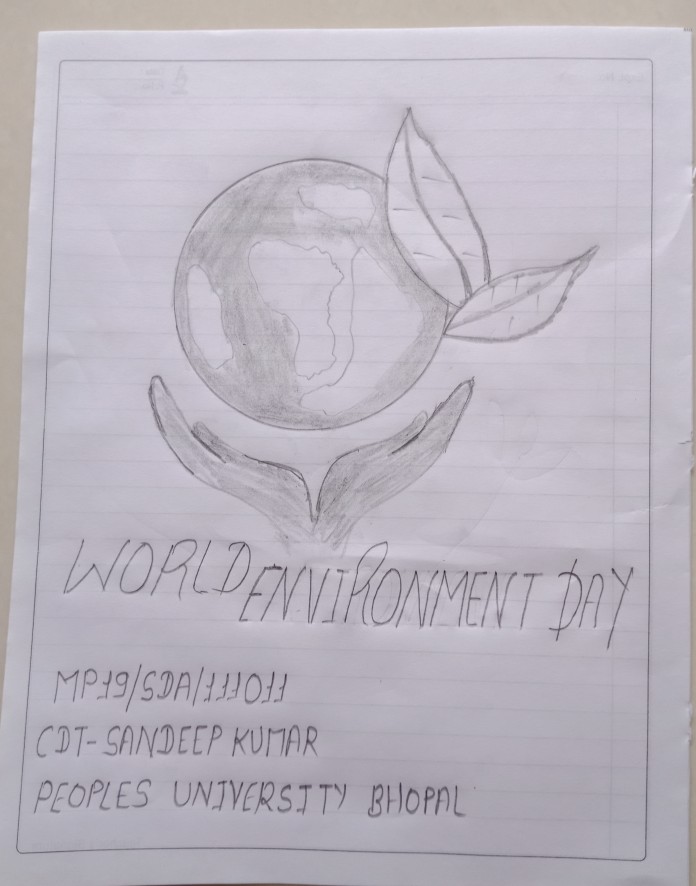 WORLD ENVIRONMENT DAY
MP19/SDA/111011
CDT-SANDEEP KUMAR
PEOPLES UNIVERSITY BHOPAL